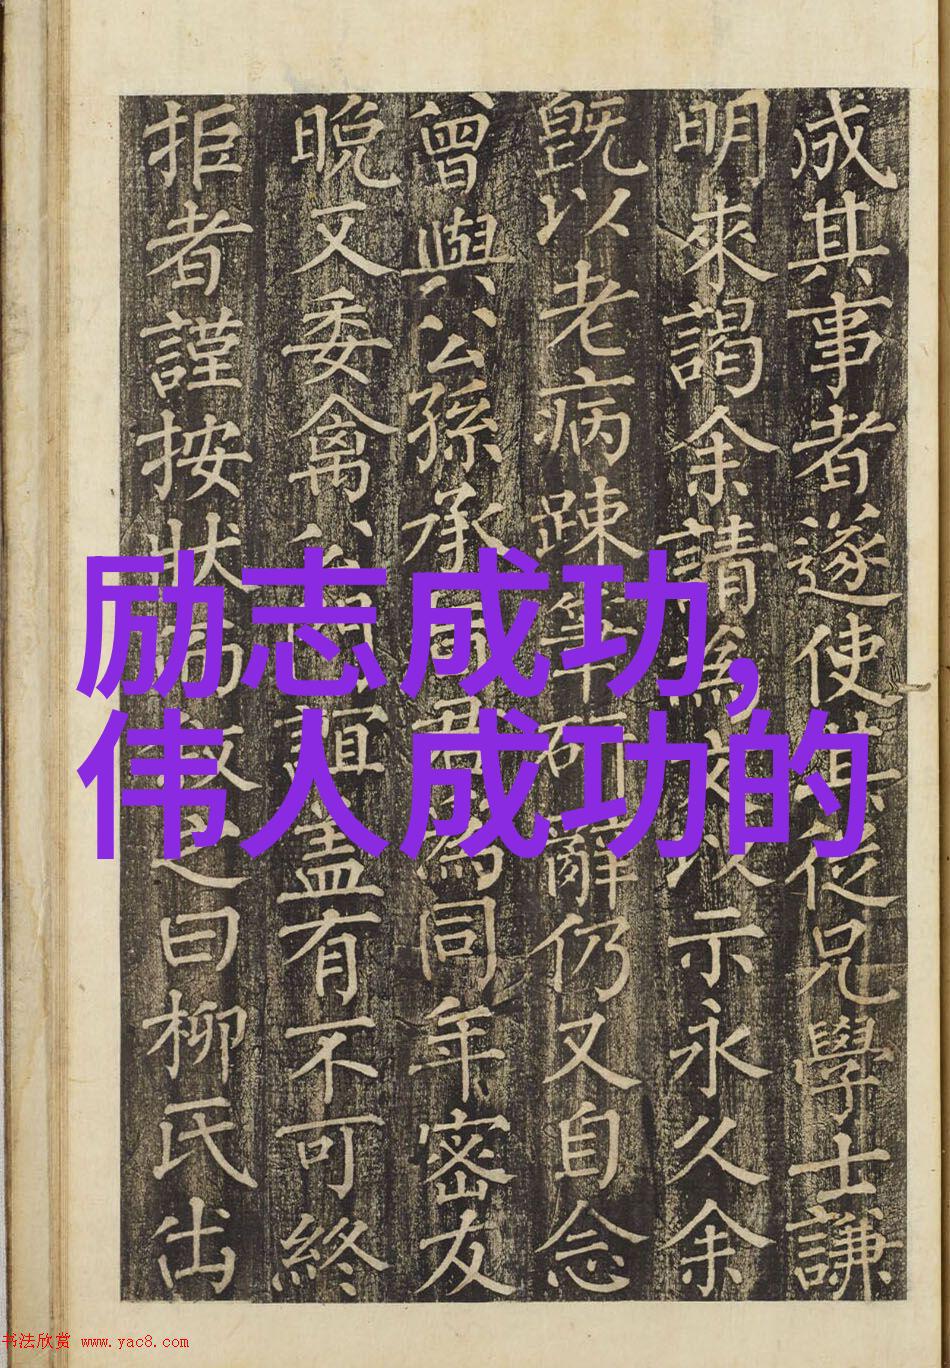 成其事者遂使其從兄學士謙
明來謁余請為文以示永久余
既以老病踈筆硯辭仍又自念
曾與公孫承為同年密友
晚又委禽誼蓋有不可終
拒者謹按狀為之曰柳氏出
励志成功,
伟人成功的
书法欣赏 www.yac8.com